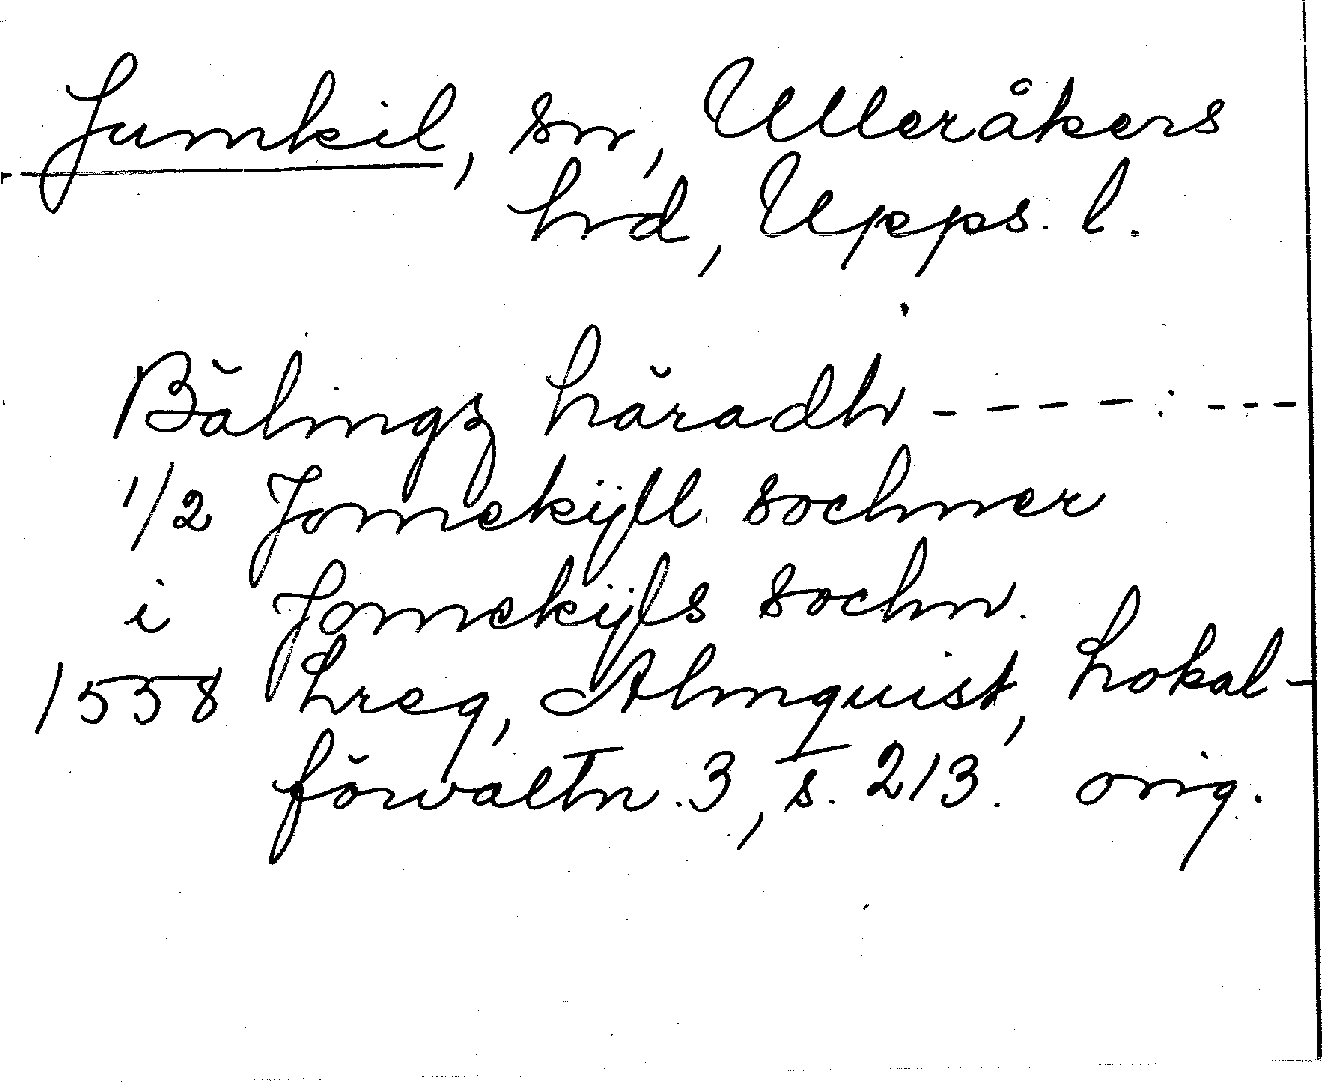 Jumkil, sn, Ulleråkers
hrd, Upps. l.
Bälingz häradh - - - - - : - - -
1/2 Jomekijll sochner
i Jomekijls sochn.
1558 hreg, Almquist, Lokal-
förvaltn. 3, s. 213. orig.